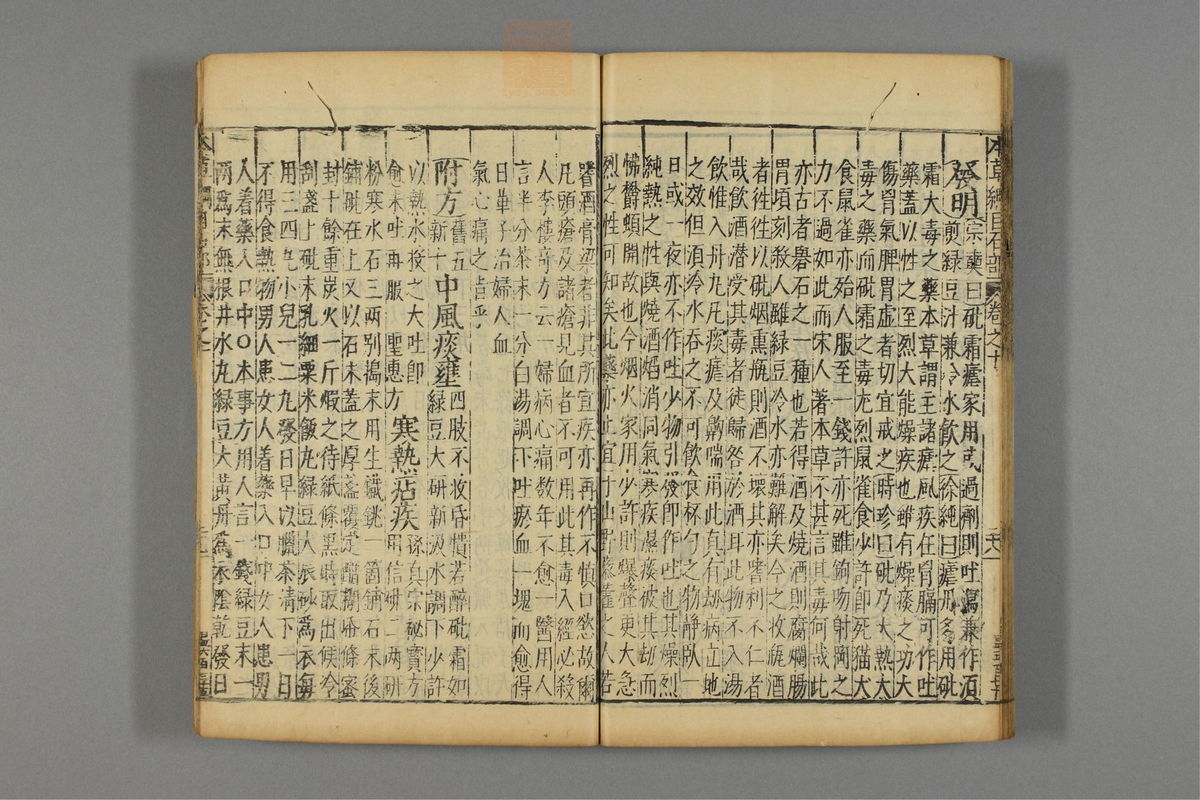 本草綱目石部 卷之十
發明 宗奭曰砒霜瘧家用或過劑則吐瀉兼作須
煎綠豆汁兼冷水飲之徐純曰瘧丹多用砒
霜大毒之藥本草謂主諸瘧風疾任胃膈可作吐
藥蓋以性之至烈大能燥疾也雖有燥痰之功大
傷胃氣脾胃虛者切宜戒之時珍曰砒乃大熱大
毒之藥而砒霜之毒尤烈鼠雀食少許即死猫犬
食鼠雀亦殆人服至一錢許亦死雖鉤吻射罔之
力不過如此而宋人著本草不甚言其毒何哉此
亦古者礜石之一種也若得酒及燒酒則腐爛腸
胃頃刻殺人雖綠豆冷水亦難解矣今之收瓶酒
者往往以砒烟熏瓶則酒不壞其亦嗜利不仁者
哉飲酒潜受其毒者徒歸咎於酒耳此物不入湯
飲惟入丹丸凡痰瘧及齁喘用此真有劫病立地
之效但須冷水吞之不可飲食杯勺之物静臥一
日或一夜亦不作吐少物引發即作吐也其燥烈
純熱之性與燒酒焰消同氣寒疾濕痰被其劫而
怫鬱頓開故也今烟火家用少許則爆聲更大急
烈之性可知矣此藥亦止宜于山野藜藿之人若
嗜酒膏粱者非其所宜疾亦再作不慎口慾故爾
凡頭瘡及諸瘡見血者不可用此其毒入經必殺
人李樓奇方云一婦病心痛数年不愈一醫用人
言半分茶末一分白湯調下吐瘀血一塊而愈得
日華子治婦人血
氣心痛之旨乎
附方 舊五新十 中風痰壅 四肢不妆昏憒若醉砒霜如
綠豆大研新汲水調下少許
以熱水投之大吐即
愈未吐再服 聖惠方 寒熱痁疾 孫真宗秘寶方
用信砒二兩研
粉寒水石三兩别搗末用生鐵銚一箇鋪石末後
鋪砒在上又以石末蓋之厚盞覆定醋糊紙條密
封十餘重炭火一斤煅之待紙條黑時取出候冷
刮盞上砒末乳細粟米飯丸綠豆大辰砂爲衣每
用三四丸小兒一二丸發日早以臘茶清下一日
不得食熱物男人患女人着藥入口中女人患男
人着藥入口中〇本事方用人言一錢綠豆末一
兩爲末無根井水丸綠豆大黃丹爲衣陰乾發日